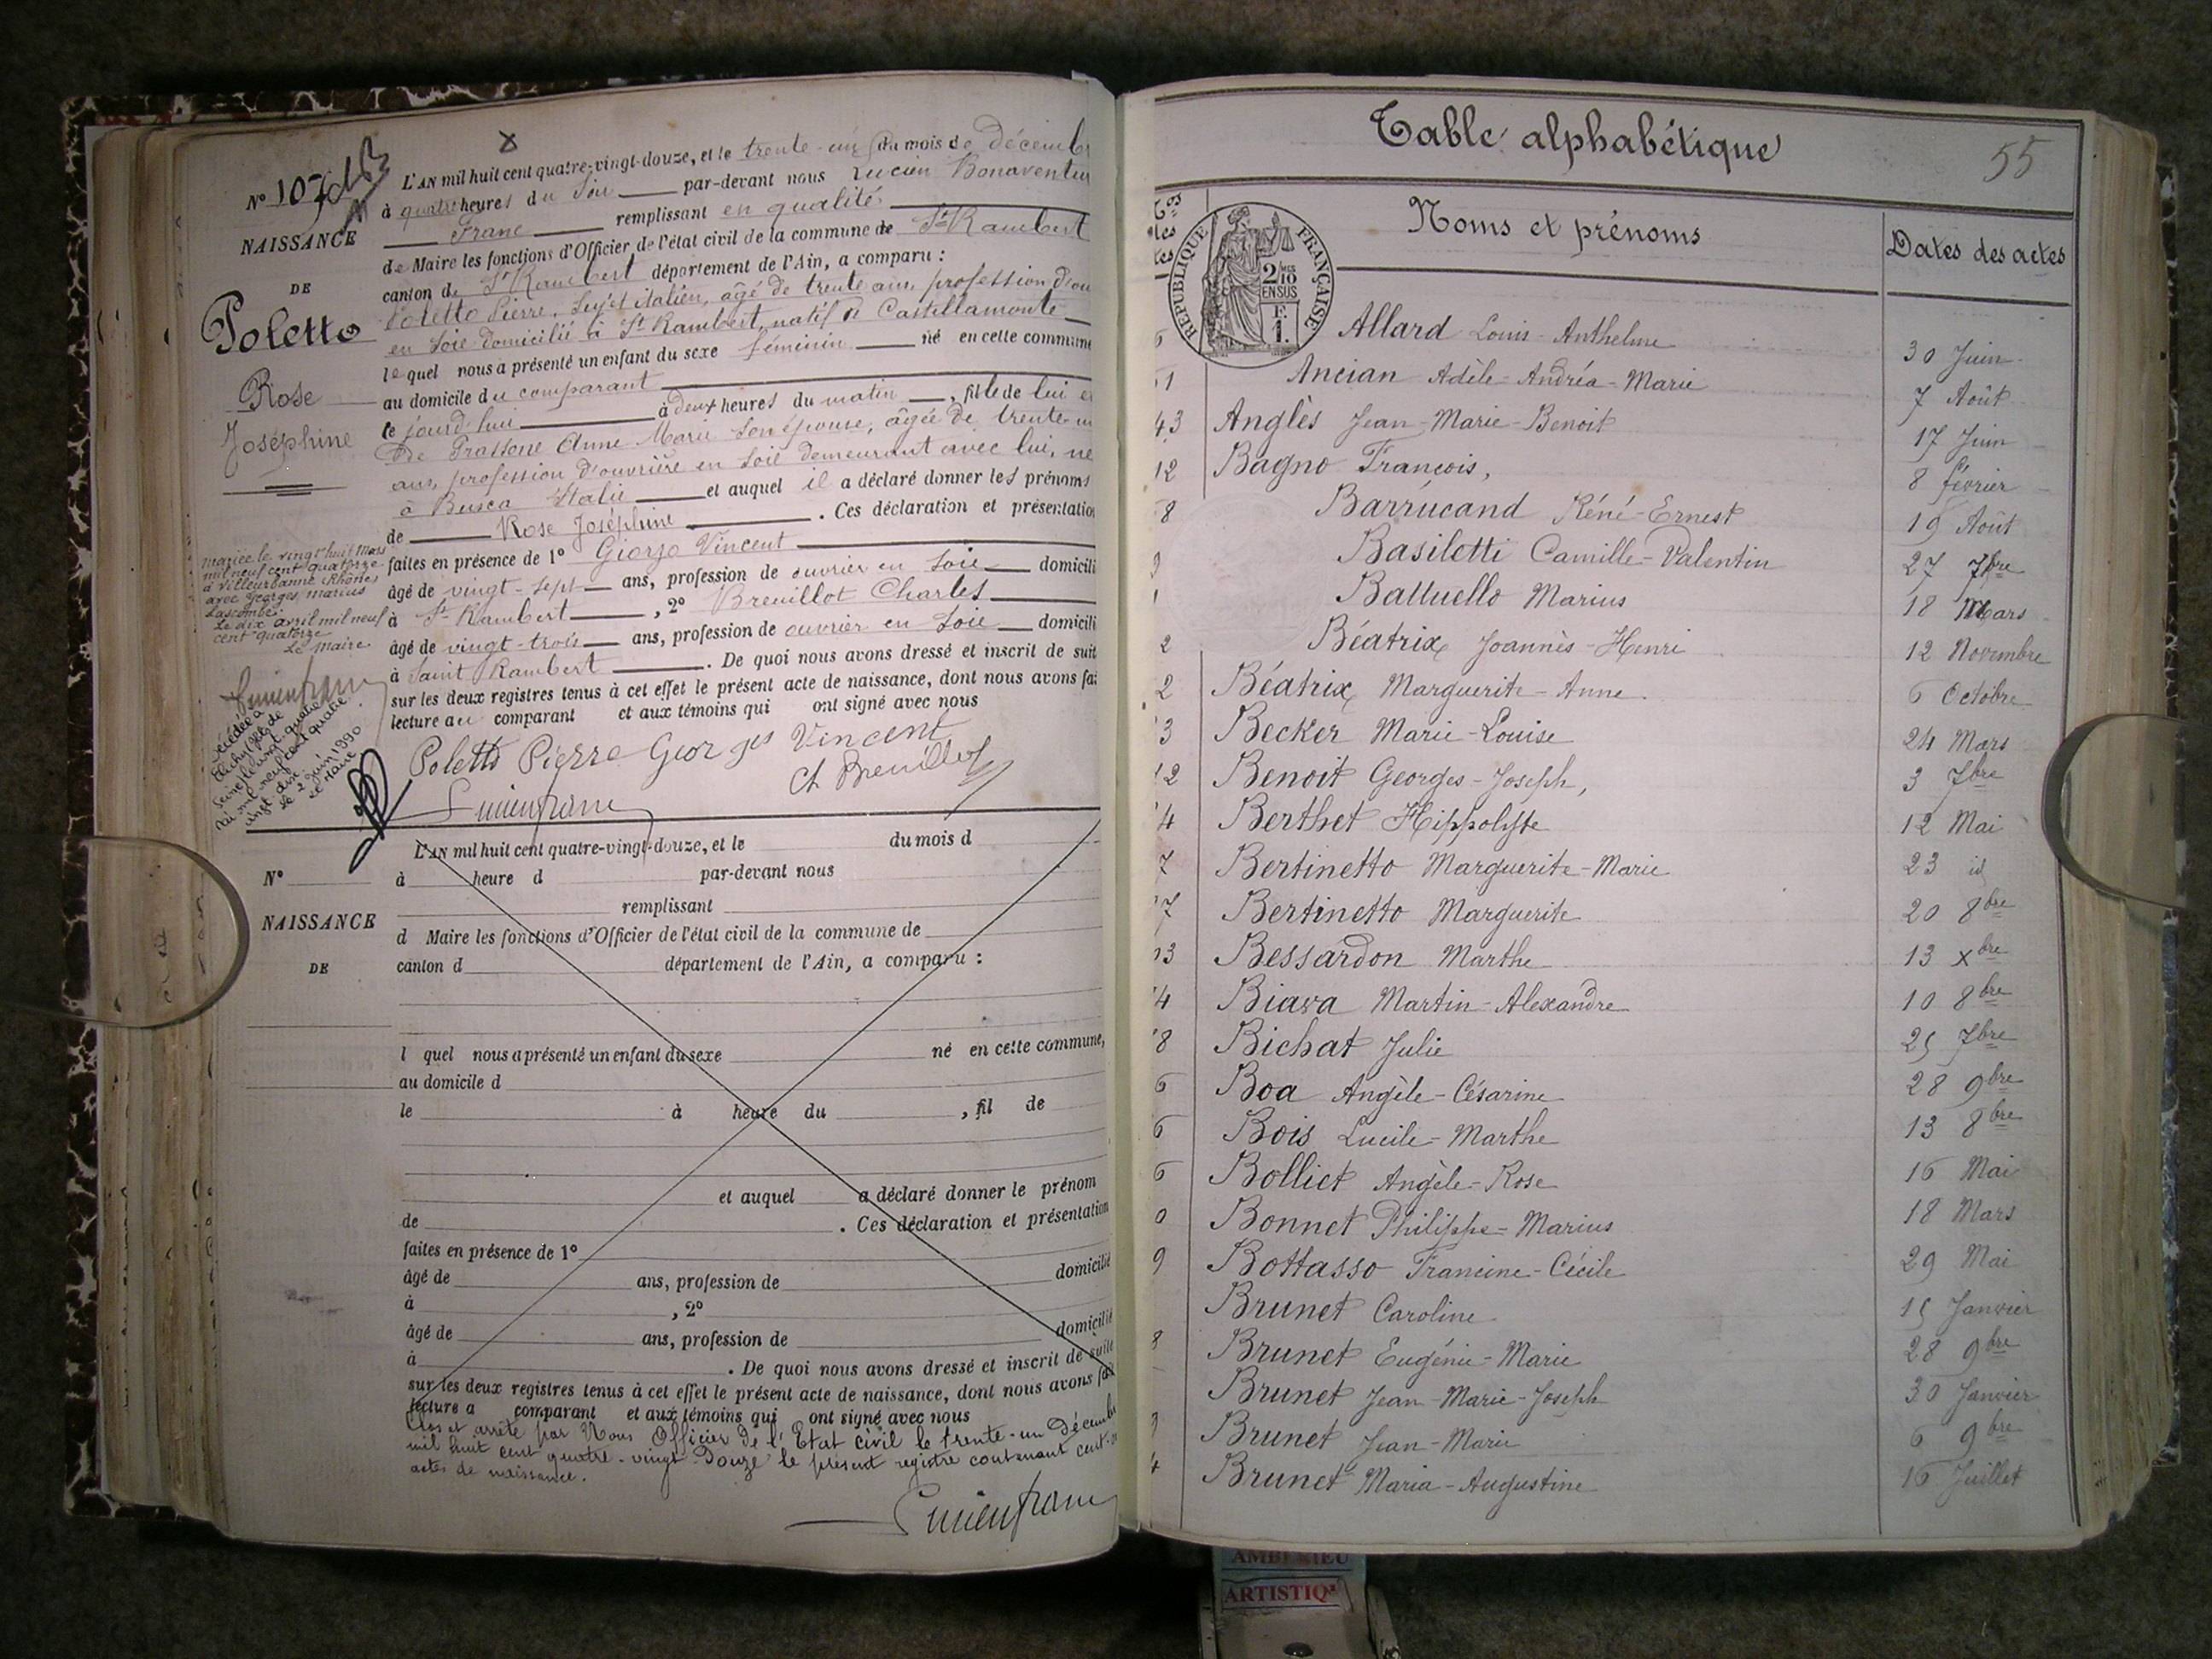 X
L'AN mil huit cent quatre-vingt-douze, et le trente-un du mois de décemb
Nº 107
à quatre heures du soir par-devant nous Lucien Bonaventur
Franc remplissant en qualité
NAISSANCE
de Maire les fonctions d'Officier de l'état civil de la commune de St Rambert
DE
canton de St Rambert département de l'Ain, a comparu :
Poletto
Poletto Pierre, sujet italien, âgé de trente ans, profession d'ou
en soie domicilié à St Rambert, natif de Castellamonte
lequel nous a présenté un enfant du sexe féminin né en cette commune
Rose
au domicile du comparant
Joséphine
le jourd'hui à deux heures du matin, fille de lui e
De Anne Marie son épouse, âgée de trente
ans, profession d'ouvrière en soie demeurant avec lui, né
à Busca Italie et auquel il a déclaré donner les prénoms
de Rose Joséphine. Ces déclaration et présentation
faites en présence de 1º Giorgo Vincent
âgé de vingt-sept ans, profession de ouvrier en soie domicili
à St Rambert, 2º Breuillot Charles
âgé de vingt-trois ans, profession de ouvrier en soie domicili
à Saint Rambert. De quoi nous avons dressé et inscrit de suit
sur les deux registres tenus à cet effet le présent acte de naissance, dont nous avons fai
lecture au comparant et aux témoins qui ont signé avec nous
mariée le vingt huit Mars
mil neuf cent quatorze
à Villeurbanne Rhône
avec Georges, Marius
Lascombe.
Le dix avril mil neuf
cent quatorze
Le Maire
Décédée à
Clichy
Seine le vingt quatre
mai mil neuf cent quatre
vingt dix
le 2 juin 1990
Le Maire
Poletto Pierre Georges Vincent
Ch Breuillot
Lucien franc
L'AN mil huit cent quatre-vingt-douze, et le du mois d
Nº
à heure d par-devant nous
remplissant
NAISSANCE
d Maire les fonctions d'Officier de l'état civil de la commune de
DE
canton d département de l'Ain, a comparu :
l quel nous a présenté un enfant du sexe né en cette commune,
au domicile d
le à heure du , fil de
et auquel a déclaré donner le prénom
de . Ces déclaration et présentation
faites en présence de 1º
âgé de ans, profession de domicilié
à , 2º
âgé de ans, profession de domicilié
à . De quoi nous avons dressé et inscrit de suite
sur les deux registres tenus à cet effet le présent acte de naissance, dont nous avons fait
lecture a comparant et aux témoins qui ont signé avec nous
Clos et arrêté par Nous Officier de l'Etat civil le trente-un Décembre
mil huit cent quatre-vingt-Douze le présent registre contenant cent-
actes de naissance.
Lucien franc
Table alphabétique
55
Noms et prénoms Dates des actes
RÉPUBLIQUE FRANÇAISE
2 MES
10
EN SUS
F.
1.
Allard Louis-Anthelme 30 Juin
Ancian Adèle-Andréa-Marie 7 Août
43 Anglès Jean-Marie-Benoit 17 Juin
12 Bagno François, 8 février
8 Barrucand Réné-Ernest 19 Août
Basiletti Camille-Valentin 27 7bre
Battuello Marius 18 Mars
2 Béatrix Joannès-Henri 12 Novembre
2 Béatrix Marguerite-Anne 6 Octobre
3 Becker Marie-Louise 24 Mars
12 Benoit Georges-Joseph, 3 7bre
4 Berthet Hippolyte 12 Mai
7 Bertinetto Marguerite-Marie 23 id
7 Bertinetto Marguerite 20 8bre
3 Bessardon Marthe 13 Xbre
4 Biava Martin-Alexandre 10 8bre
8 Bichat Julie 25 7bre
6 Boa Angèle-Césarine 28 9bre
6 Bois Lucile-Marthe 13 8bre
6 Bolliet Angèle-Rose 16 Mai
0 Bonnet Philippe-Marius 18 Mars
9 Bottasso Francine-Cécile 29 Mai
Brunet Caroline 15 Janvier
8 Brunet Eugénie-Marie 28 9bre
Brunet Jean-Marie-Joseph 30 Janvier
Brunet Jean-Marie 6 9bre
4 Brunet Maria-Augustine 16 Juillet
AMBERIEU
ARTISTIQ